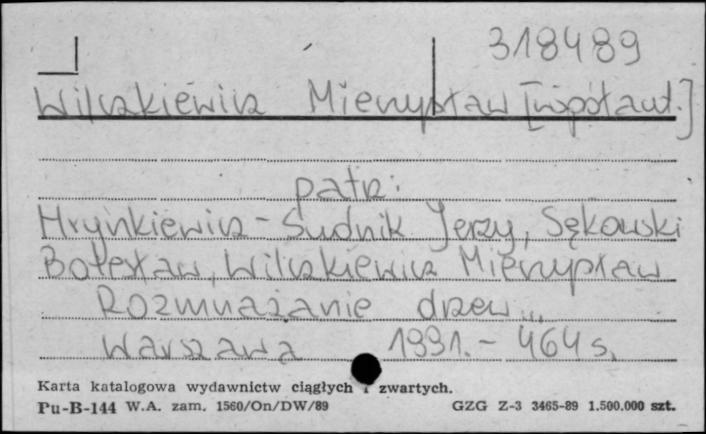 318489
Wilczkiewicz Mieczysław [współaut.]
patrz:
Hrynkiewicz-Sudnik Jerzy, Sękowski
Bolesław, Wilczkiewicz Mieczysław
Rozmnażanie drzew...
Warszawa 1991.- 464 s.
Karta katalogowa wydawnictw ciągłych i zwartych.
Pu-B-144 W.A. zam. 1560/On/DW/89 GZG Z-3 3465-89 1.500.000 szt.